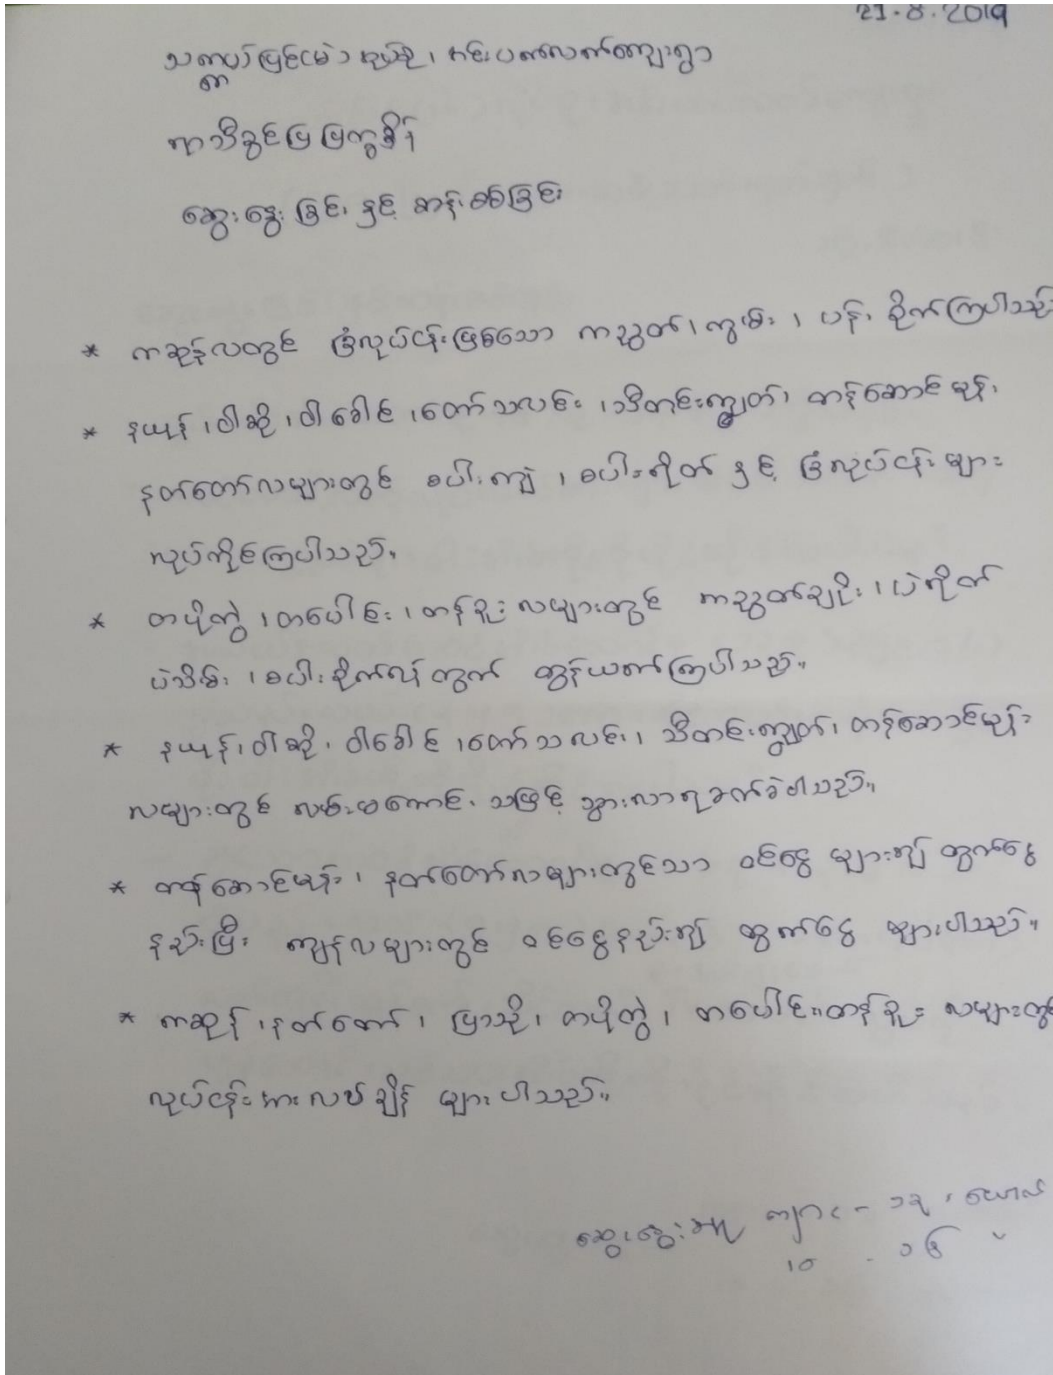 21.8.2019
ရာသီခွင်ပြ ပြက္ခဒိန်
ဆွေးနွေးခြင်း နှင့် ဆန်းစစ်ခြင်း
* ကဆုန်လတွင် ခြံလုပ်ငန်းဖြစ်သော ကညွတ်၊ ကွမ်း၊ ပန်း စိုက်ကြပါသည်
* နယုန်၊ ဝါဆို၊ ဝါခေါင်၊ တော်သလင်း၊ သီတင်းကျွတ်၊ တန်ဆောင်မုန်း၊
နတ်တော်လများတွင် စပါးကျဲ၊ စပါးရိတ် နှင့် ခြံလုပ်ငန်းများ
လုပ်ကိုင်ကြပါသည်။
* တပို့တွဲ၊ တပေါင်း၊ တန်ခူးလများတွင် ကညွတ်ချိုး၊ ပဲရိုတ်
ပဲသိမ်း၊ စပါးစိုက်ရန်တွက် ထွန်ယက်ကြပါသည်။
* နယုန်၊ ဝါဆို၊ ဝါခေါင်၊ တော်သလင်း၊ သီတင်းကျွတ်၊ တန်ဆောင်မုန်း
လများတွင် လမ်းမကောင်းသဖြင့် သွားလာရခက်ခဲပါသည်။
* တန်ဆောင်မုန်း၊ နတ်တော်လများတွင်သာ ဝင်ငွေများ၍ ထွက်ငွေ
နည်းပြီး ကျန်လများတွင် ဝင်ငွေနည်း၍ ထွက်ငွေ များပါသည်။
* ကဆုန်၊ နတ်တော်၊ ပြာသို၊ တပို့တွဲ၊ တပေါင်း။ တန်ခူး လများတွင်
လုပ်ငန်းအားလပ်ချိန် များပါသည်။
ဆွေးနွေးသူ ကျား -